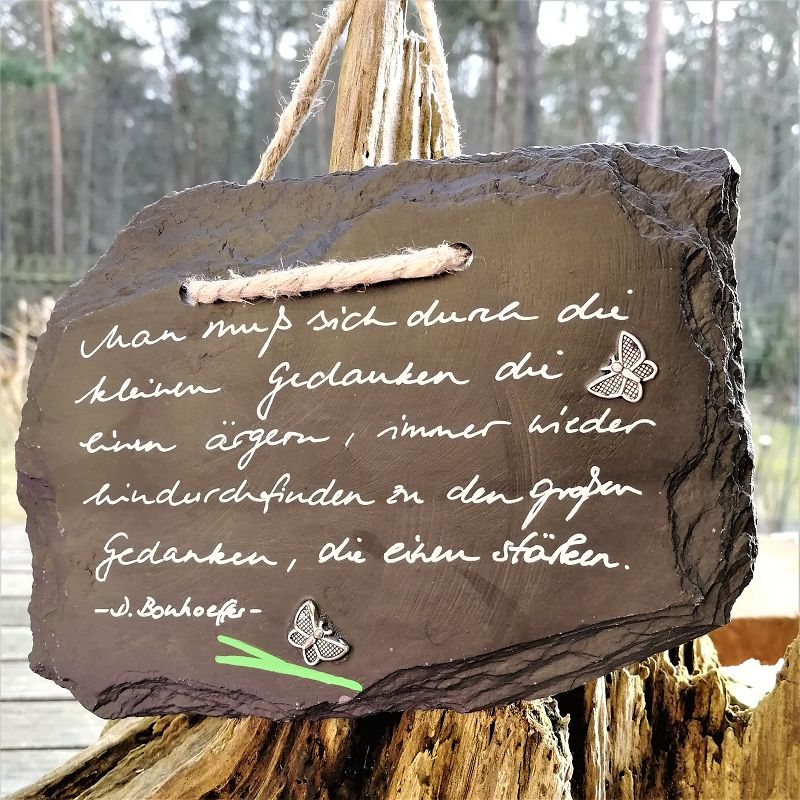 Man muß sich durch die
kleinen Gedanken die
einen ärgern, immer wieder
hindurchfinden zu den großen
Gedanken, die einen stärken.
- D. Bonhoeffer -